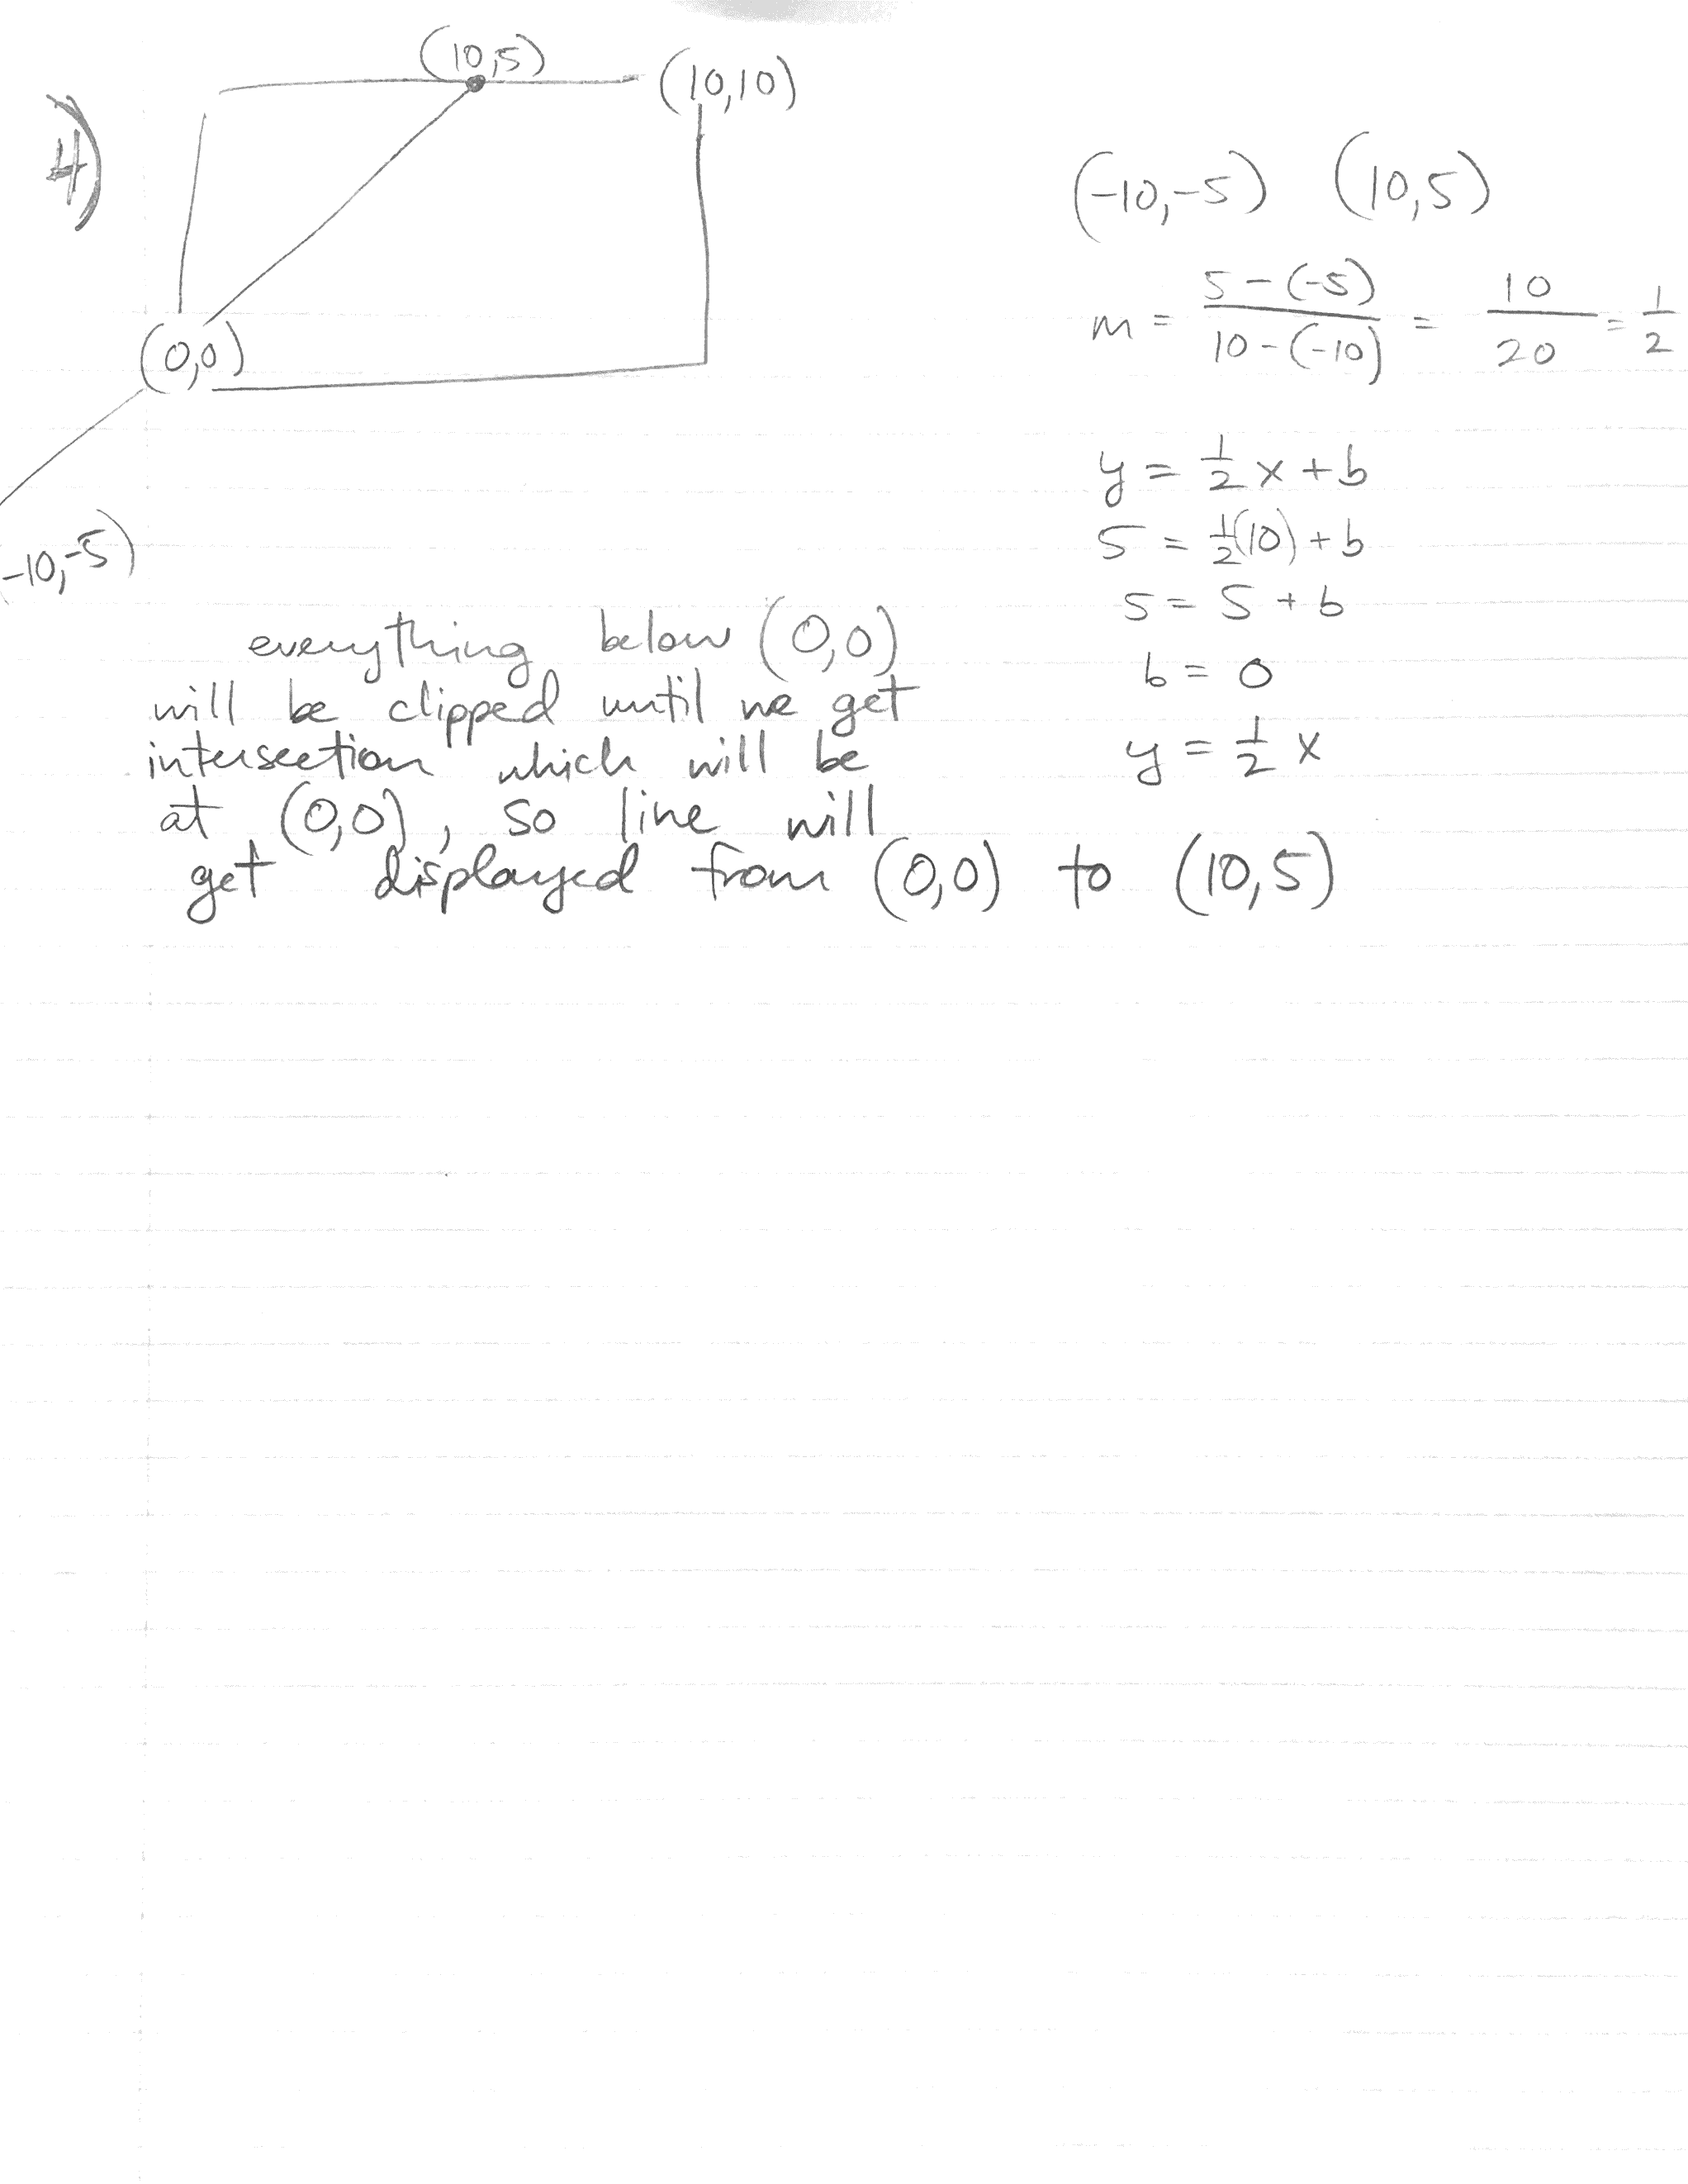 4)
(10,5)
(10,10)
(0,0)
-10,-5)
(-10,-5) (10,5)
m = 5-(-5) / 10-(-10) = 10 / 20 = 1/2
y = 1/2 x + b
5 = 1/2(10) + b
5 = 5 + b
b = 0
y = 1/2 x
everything below (0,0)
will be clipped until we get
intersection which will be
at (0,0), so line will
get displayed from (0,0) to (10,5)